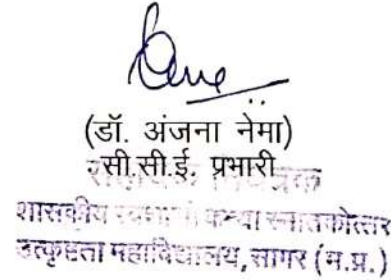 (डॉ. अंजना नेमा)
सी.सी.ई. प्रभारी
शासकीय कन्या स्नातकोत्तर
उत्कृष्टता महाविद्यालय, सागर (म.प्र.)